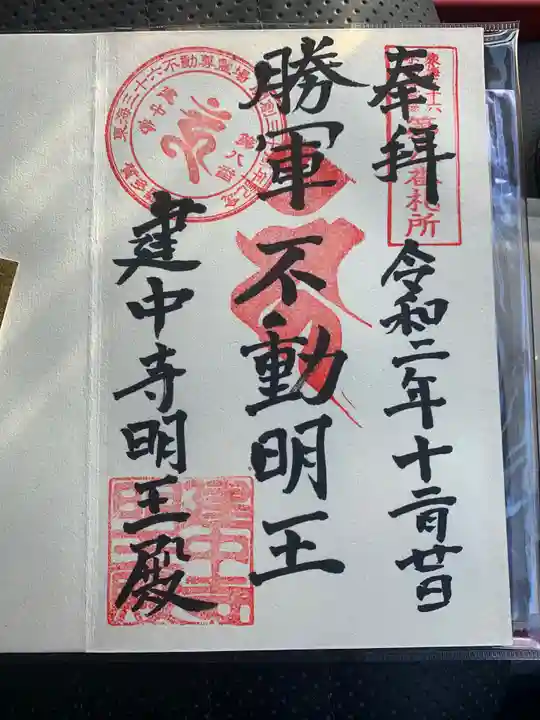 奉拝
番札所
令和二年十二月廿日
勝軍不動明王
東海三十六不動尊霊場
第八番
建中寺
建中寺明王殿